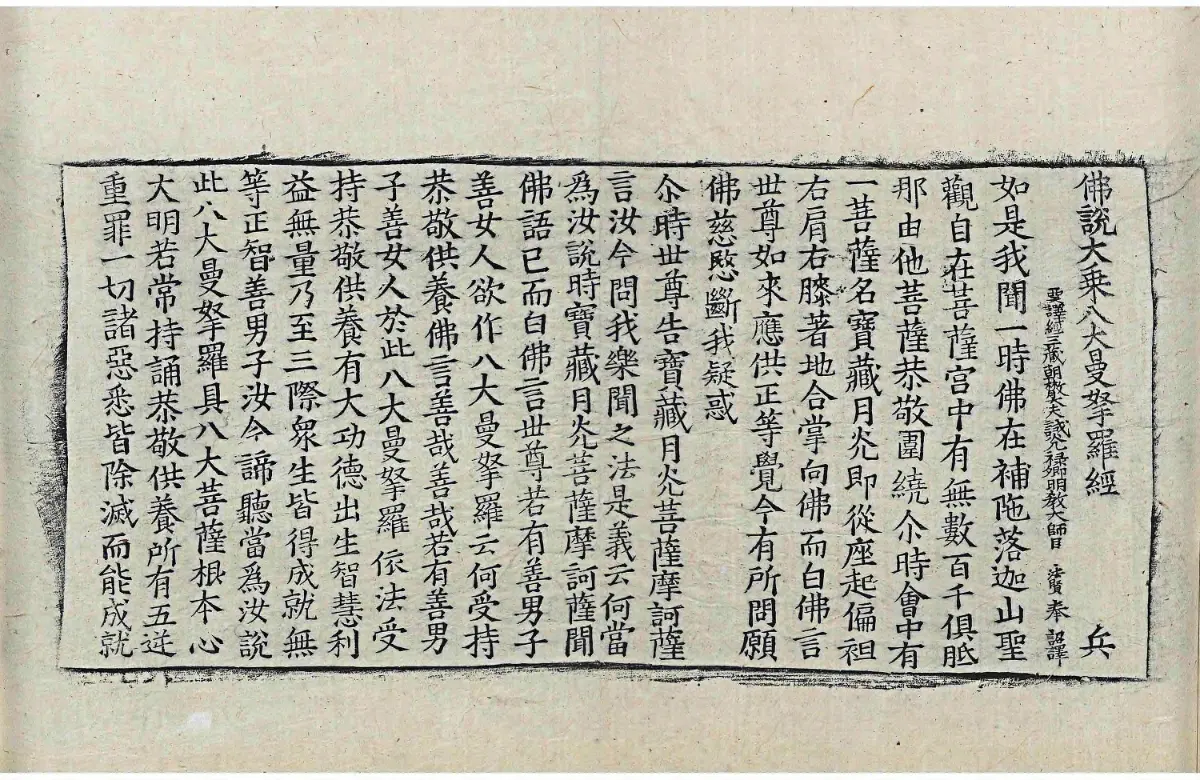 佛說大乘八大曼拏羅經 兵
西天譯經三藏朝散大夫試光祿卿明教大師臣 法賢 奉 詔譯
如是我聞一時佛在補陁落迦山聖
觀自在菩薩宮中有無數百千俱胝
那由他菩薩恭敬圍繞尒時會中有
一菩薩名寶藏月光即從座起偏袒
右肩右膝著地合掌向佛而白佛言
世尊如來應供正等覺今有所問願
佛慈愍斷我疑惑
尒時世尊告寶藏月光菩薩摩訶薩
言汝今問我樂聞之法是義云何當
爲汝說時寶藏月光菩薩摩訶薩聞
佛語已而白佛言世尊若有善男子
善女人欲作八大曼拏羅云何受持
恭敬供養佛言善哉善哉若有善男
子善女人於此八大曼拏羅依法受
持恭敬供養有大功德出生智慧利
益無量乃至三際衆生皆得成就無
等正智善男子汝今諦聽當爲汝說
此八大曼拏羅具八大菩薩根本心
大明若常持誦恭敬供養所有五逆
重罪一切諸惡悉皆除滅而能成就